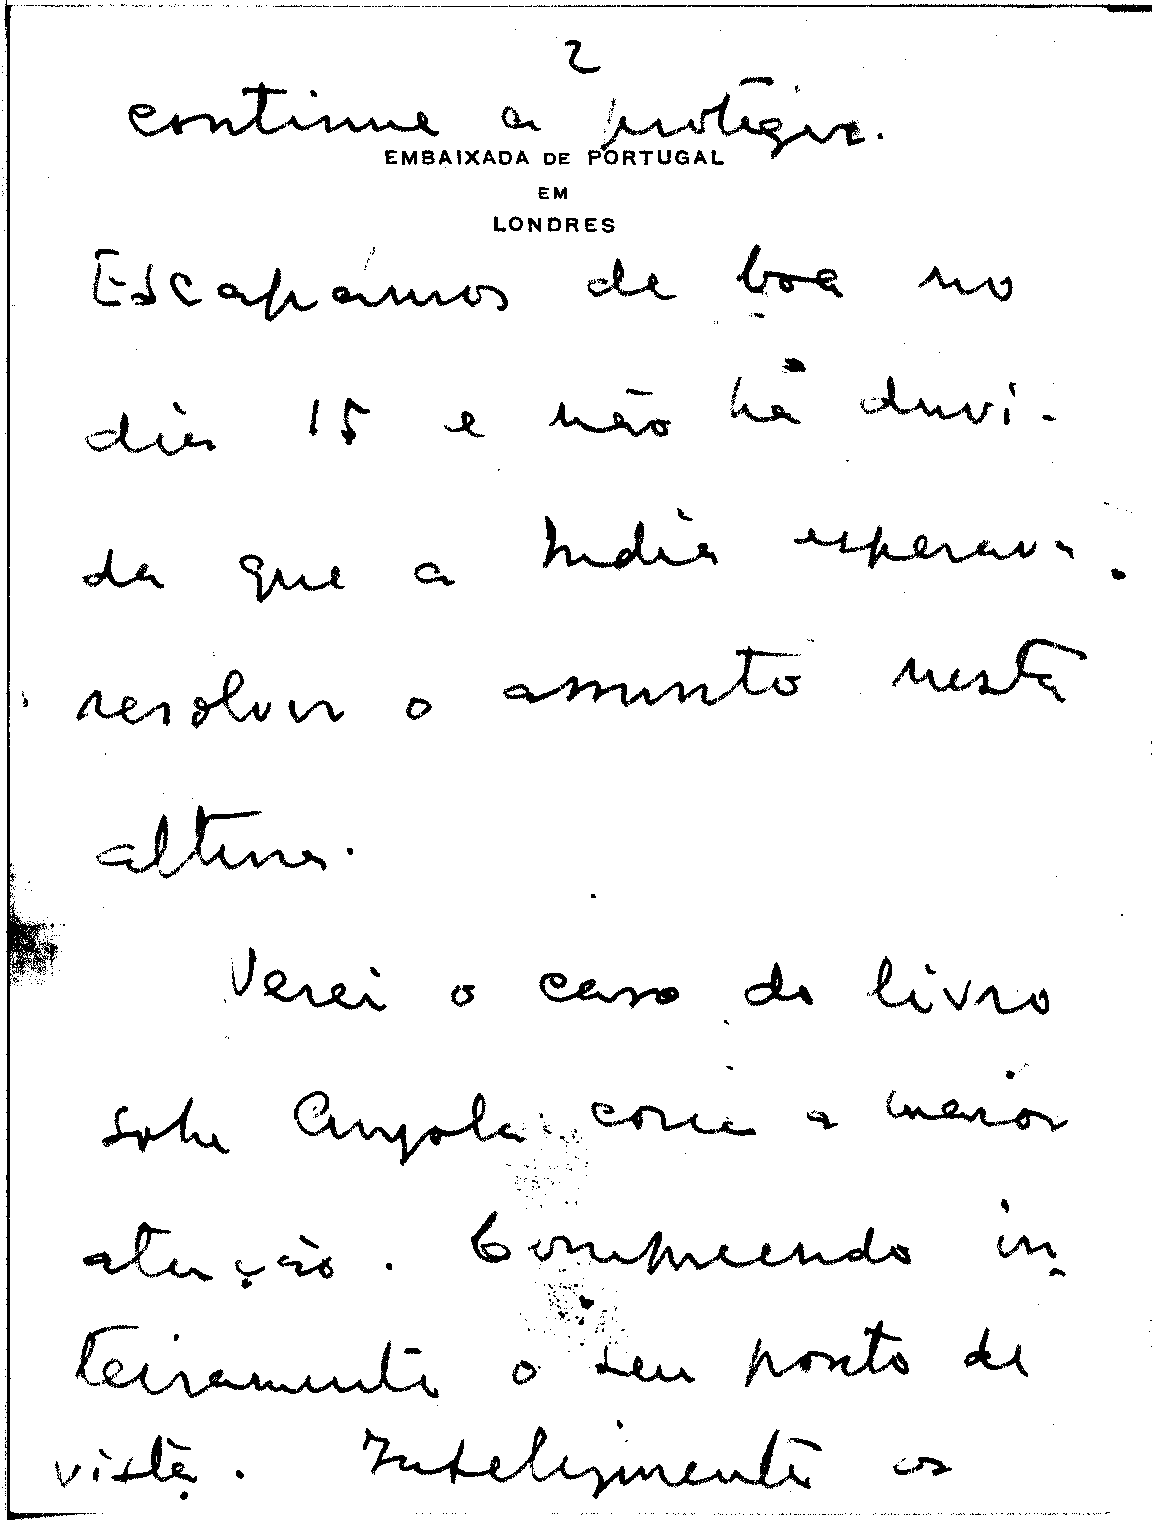 2
continue a proteger.
EMBAIXADA DE PORTUGAL
EM
LONDRES
Escapámos de boa no
dia 15 e não há duvi-
da que a India esperava
resolver o assunto nesta
altura.
Verei o caso do livro
sobre Angola com a maior
atenção. Compreendo in-
teiramente o seu ponto de
vista. Infelizmente os